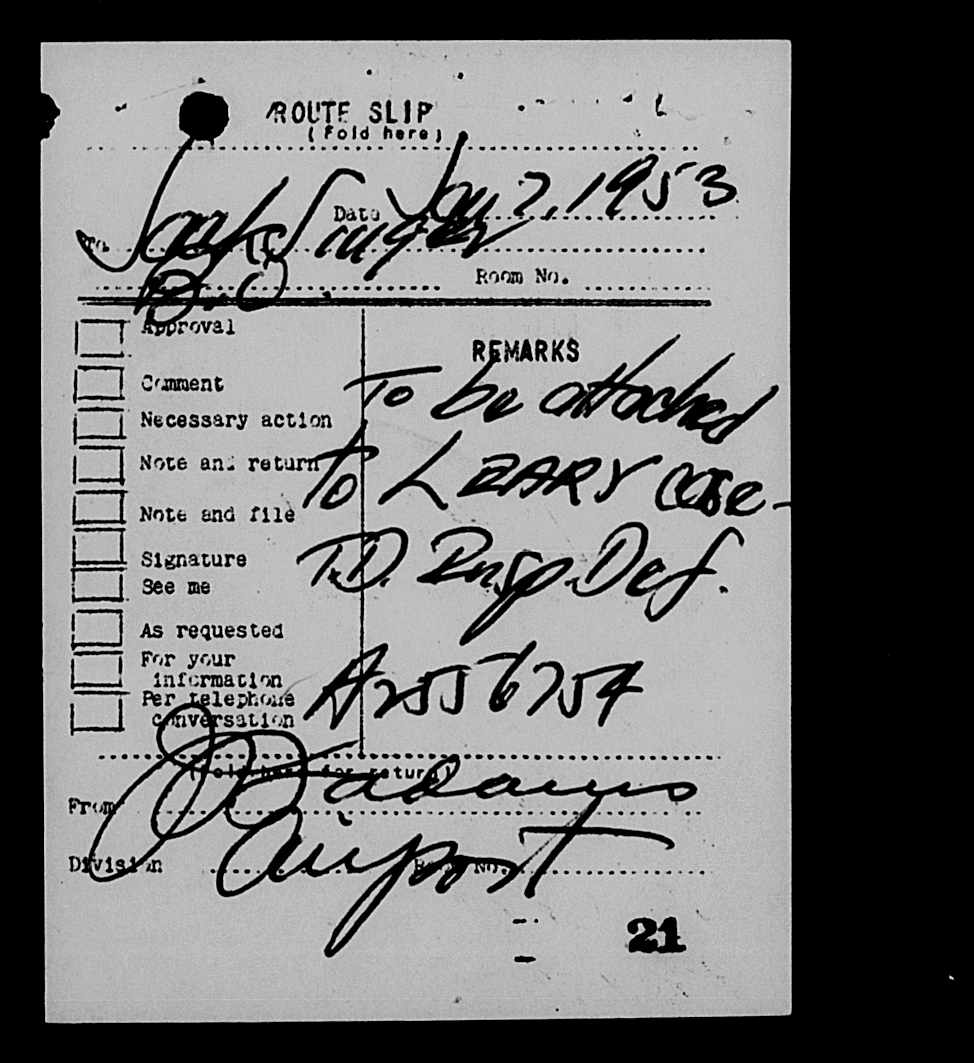 ROUTE SLIP
(Fold here)
Date Jan 7, 1953
To. Jack Singer
D.O. Room No.
Approval
REMARKS
Comment
To be attached
Necessary action
Note and return
to LEARY case-
Note and file
Signature
T.D. Insp. Def.
See me
As requested
For your
information
A2556754
Per telephone
conversation
(Fold here for return)
From Adams
Division Airport Room No.
21